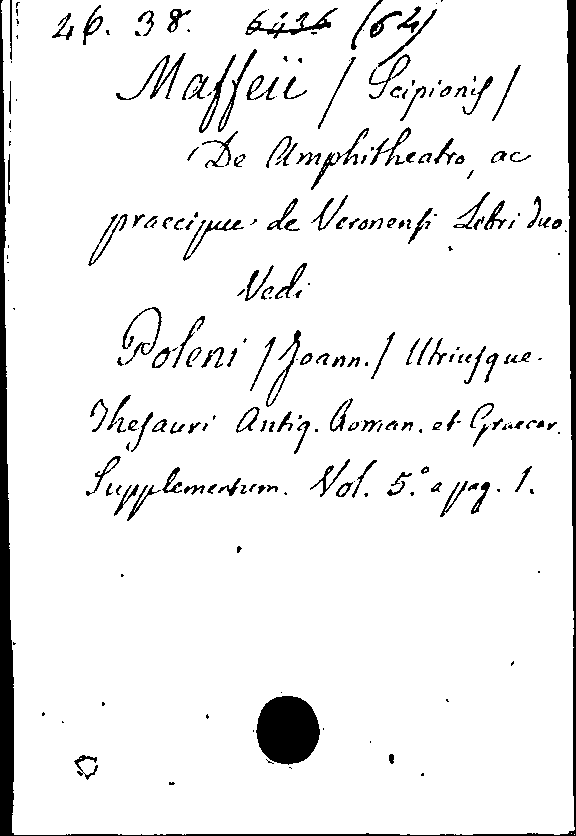 26. 38. 6436 (62)
Maffeii / Scipionis /
De Amphitheatro, ac
praecipue de Veronensi Libri duo.
Vedi
Poleni / Joann. / Utriusque
Thesauri Antiq. Roman. et Graecar.
Supplementum. Vol. 5.° a pag. 1.